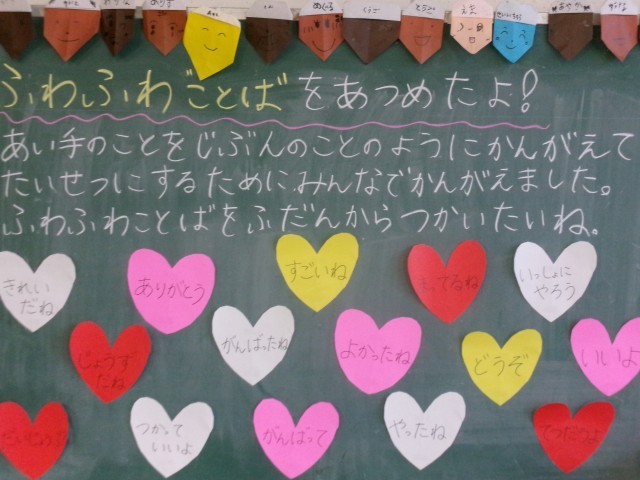 ふわふわことばをあつめたよ!
あい手のことをじぶんのことのようにかんがえて
たいせつにするためにみんなでかんがえました。
ふわふわことばをふだんからつかいたいね。
きれい
だね
ありがとう
すごいね
まってるね
いっしょに
やろう
じょうず
だね
がんばったね
よかったね
どうぞ
いいよ
つかって
いいよ
がんばって
やったね
てつだうよ